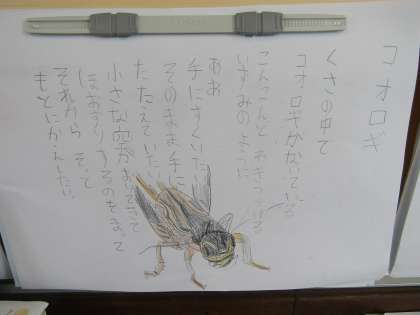 コオロギ
くさの中で
コオロギがないている
こんこんと わきつづける
いずみのように
ああ
手にすくいたい
そのまま手に
たたえていたい
小さな空が おりてきて
ほおずりするのをまって
それから そっと
もとにかえしたい